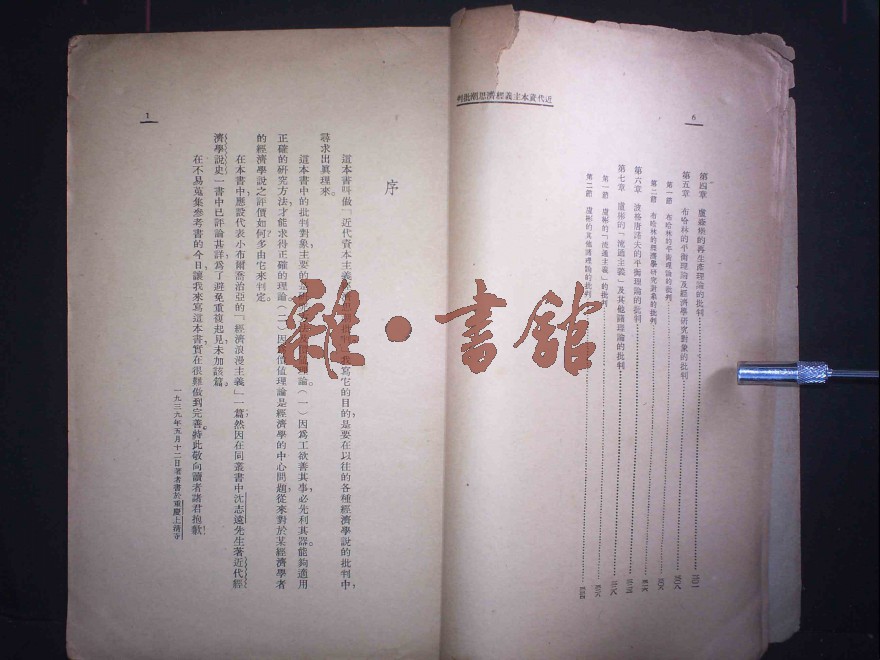 近代資本主義經濟思潮批判
6
第四章 盧森堡的再生產理論的批判
第五章 布哈林的平衡理論及經濟學研究對象的批判
第一節 布哈林的平衡理論的批判
第二節 布哈林的經濟學研究對象的批判
第六章 波格唐諾夫的平衡理論的批判
第七章 盧彬的「流通主義」及其他諸理論的批判
第一節 盧彬的「流通主義」的批判
第二節 盧彬的其他諸理論的批判
1
序
這本書叫做「近代資本主義 批判」。我寫它的目的,是要在以往的各種經濟學說的批判中,
尋求出眞理來。
這本書中的批判對象,主要的是 理論。(一)因爲工欲善其事,必先利其器。能夠適用
正確的研究方法,才能求得正確的理論(二)因爲價值理論是經濟學的中心問題,從來對於某經濟學者
的經濟學說之評價如何?多由它來判定。
在本書中,應設代表小布爾喬治亞的「經濟浪漫主義」一篇,然因在同叢書中沈志遠先生著近代經
濟學說史一書中已評論甚詳,爲了避免重複起見,未加該篇。
在不易蒐集參考書的今日,讓我來寫這本書,實在很難做到完善。特此敬向讀者諸君抱歉!
一九三九年五月十二日著者書於重慶上清寺
雜·書館